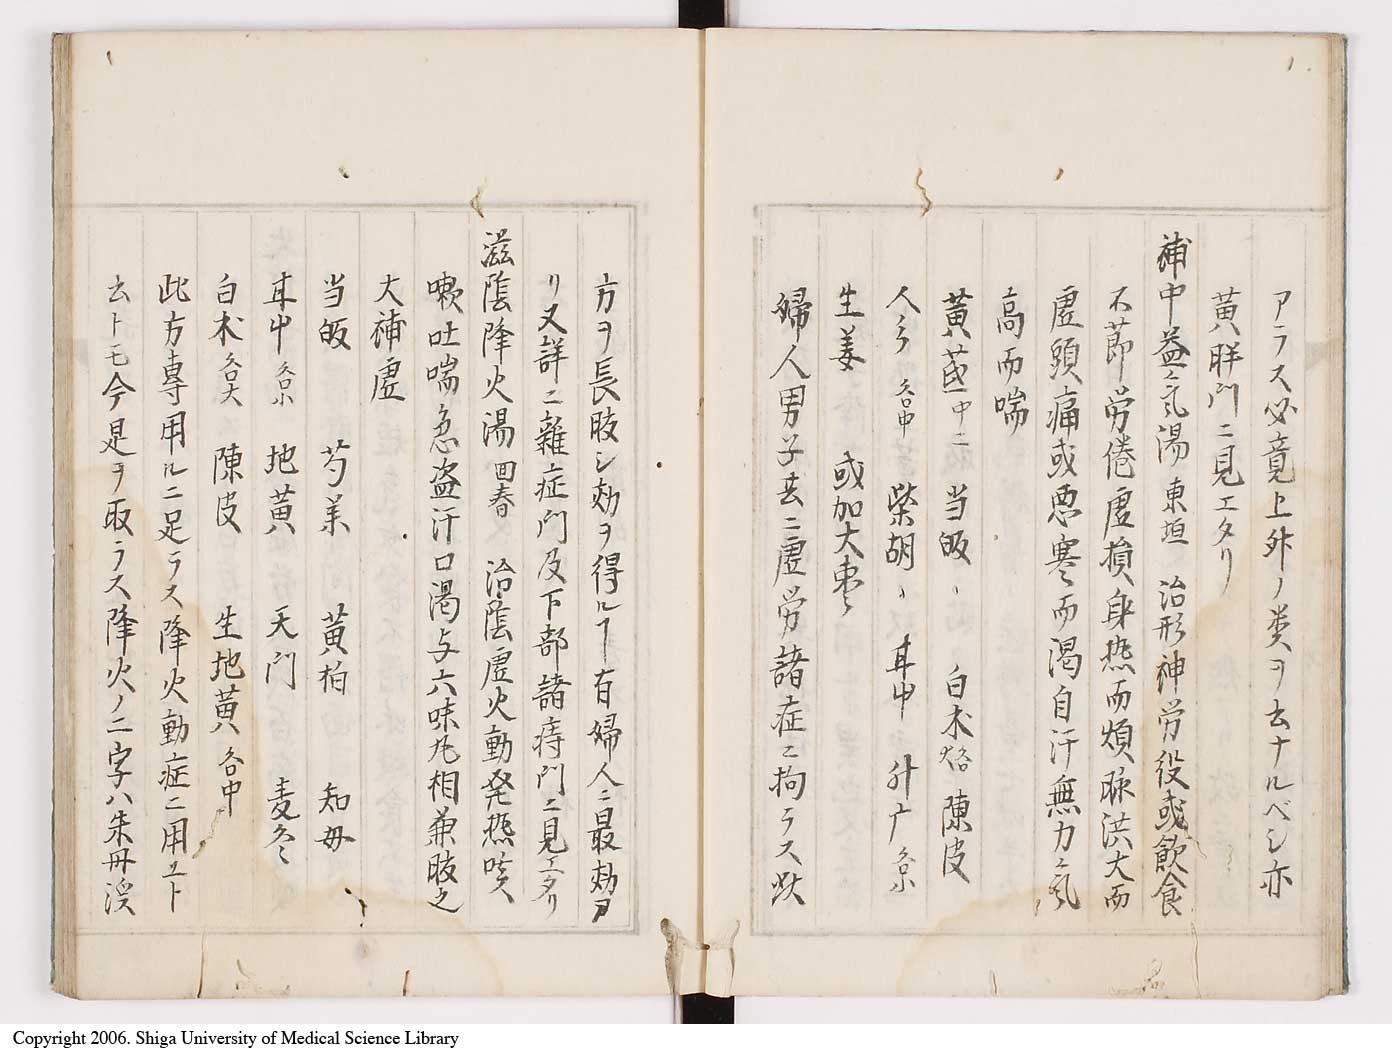 アラス必竟上外ノ类ヲ去ナルベシ亦
黄胖門ニ見エタリ
補中益气湯 東垣 治形神労役或飲食
不莭労倦虚損身热而煩脉洪大而
虚頭痛或悪寒而渇自汗無力气
高而喘
黄芪 中ニ 当皈 白朮 陳皮
人 各中 柴胡 升广 各小
生姜 或加大枣
婦人男子共ニ虚労諸症ニ拘ラス此
方ヲ長服シ効ヲ得ルヿ有婦人ニ最効ヲ
リ又詳ニ雜症門及下部諸痔門ニ見エタリ
滋陰降火湯 回春 治陰虚火動発热咳
嗽吐喘急盗汗口渇与六味丸相兼服之
大補虚
当皈 芍薬 黄柏 知母
各小 地黄 天門 麦冬
白朮 各大 陳皮 生地黄 各中
此方專用ルニ足ラス降火動症ニ用ユト
云トモ今是ヲ取ラス降火ノ二字ハ朱丹渓
Copyright 2006. Shiga University of Medical Science Library